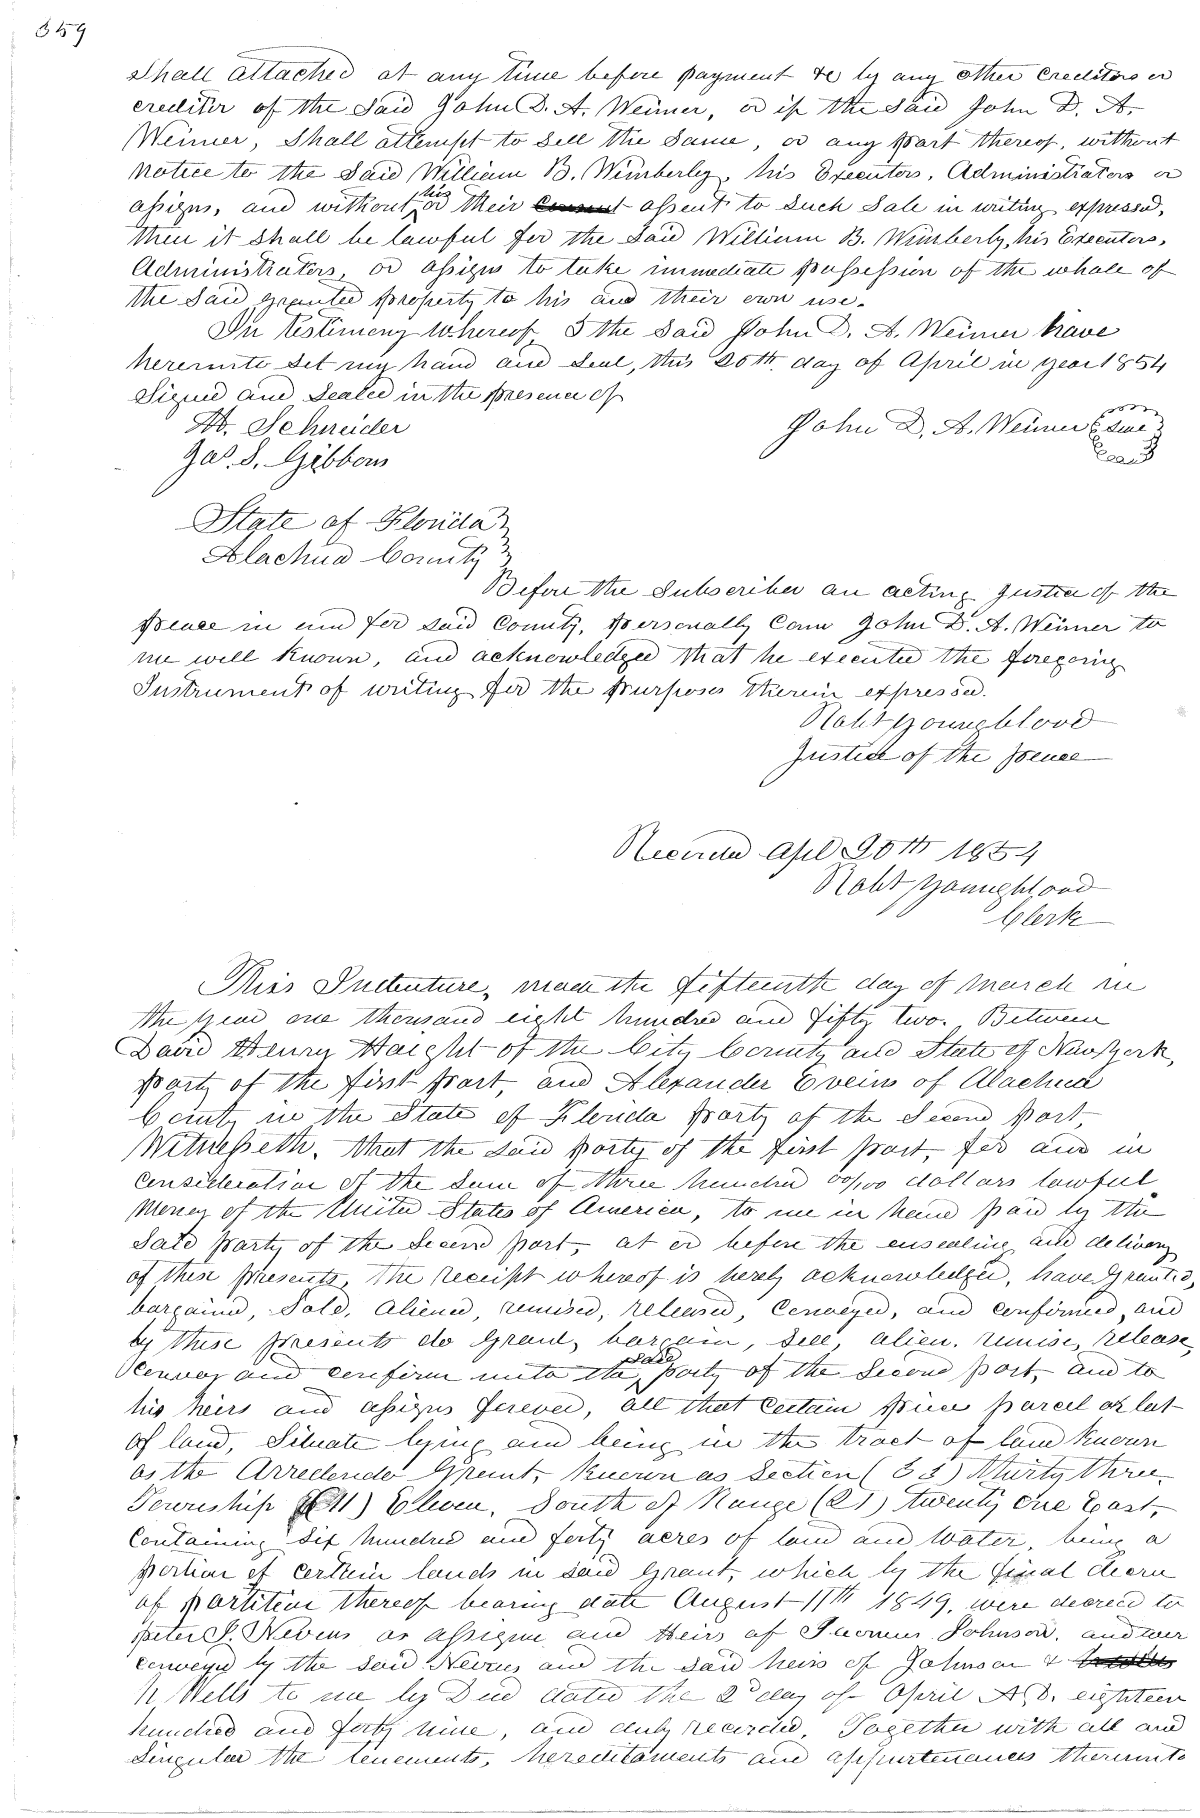 359
Shall attached at any time before payment &c by any other creditors or
creditor of the Said John D. A. Weimer, or if the Said John D. A.
Weimer, Shall attempt to Sell the Same, or any part thereof, without
notice to the Said William B. Wimberly, his Executors, Administrators or
assigns, and without his or their consent assent to Such Sale in writing expressed,
then it Shall be lawful for the Said William B. Wimberly, his Executors,
Administrators, or assigns to take immediate possession of the whole of
the Said granted property to his and their own use.
In testimony whereof I the Said John D. A. Weimer have
hereunto Set my hand and Seal, this 20th. day of April in year 1854
Signed and Sealed in the presence of
H. Schneider
John D. A. Weimer Seal
Jas. S. Gibbons
State of Florida
Alachua County
Before the Subscriber an acting Justice of the
peace in and for Said County, personally Came John D. A. Weimer to
me well known, and acknowledged that he executed the foregoing
Instrument of writing for the purposes therein expressed.
Robt Youngblood
Justice of the peace
Recorded Apl 20th 1854
Robt Youngblood
Clerk
This Indenture, made the fifteenth day of March in
the year one thousand eight hundred and fifty two. Between
David Henry Haight of the City County and State of New York,
party of the first part, and Alexander Eveins of Alachua
County in the State of Florida party of the Second Part,
Witnesseth, that the Said party of the first part, for and in
consideration of the Sum of three hundred 00/100 dollars lawful
Money of the United States of America, to me in hand paid by the
Said party of the Second part, at or before the ensealing and delivery
of these presents, the receipt whereof is herely acknowledged, have Granted,
bargained, Sold, aliened, remised, released, Conveyed, and confirmed, and
by these presents do Grant, bargain, Sell, alien, remise, release,
Convey and confirm unto the Said party of the Second part, and to
his heirs and assigns forever, all that Certain piece parcel or lot
of land, Situate lying and being in the tract of land known
as the Arredondo Grant, known as Section (33) thirty three
Township (11) Eleven, South of Range (21) twenty one East,
Containing Six hundred and forty acres of land and Water, being a
portion of certain lands in Said Grant, which by the final decree
of partition thereof bearing date August 11th 1849, were decreed to
Peter J. Nevius as assignee and Heirs of Johnson, and were
conveyed by the Said Nevius and the Said heirs of Johnson &
N Wells to me by Deed dated the 2d day of April A.D. eighteen
hundred and forty nine, and duly recorded, Together with all and
Singular the tenements, hereditaments and appurtenances thereunto